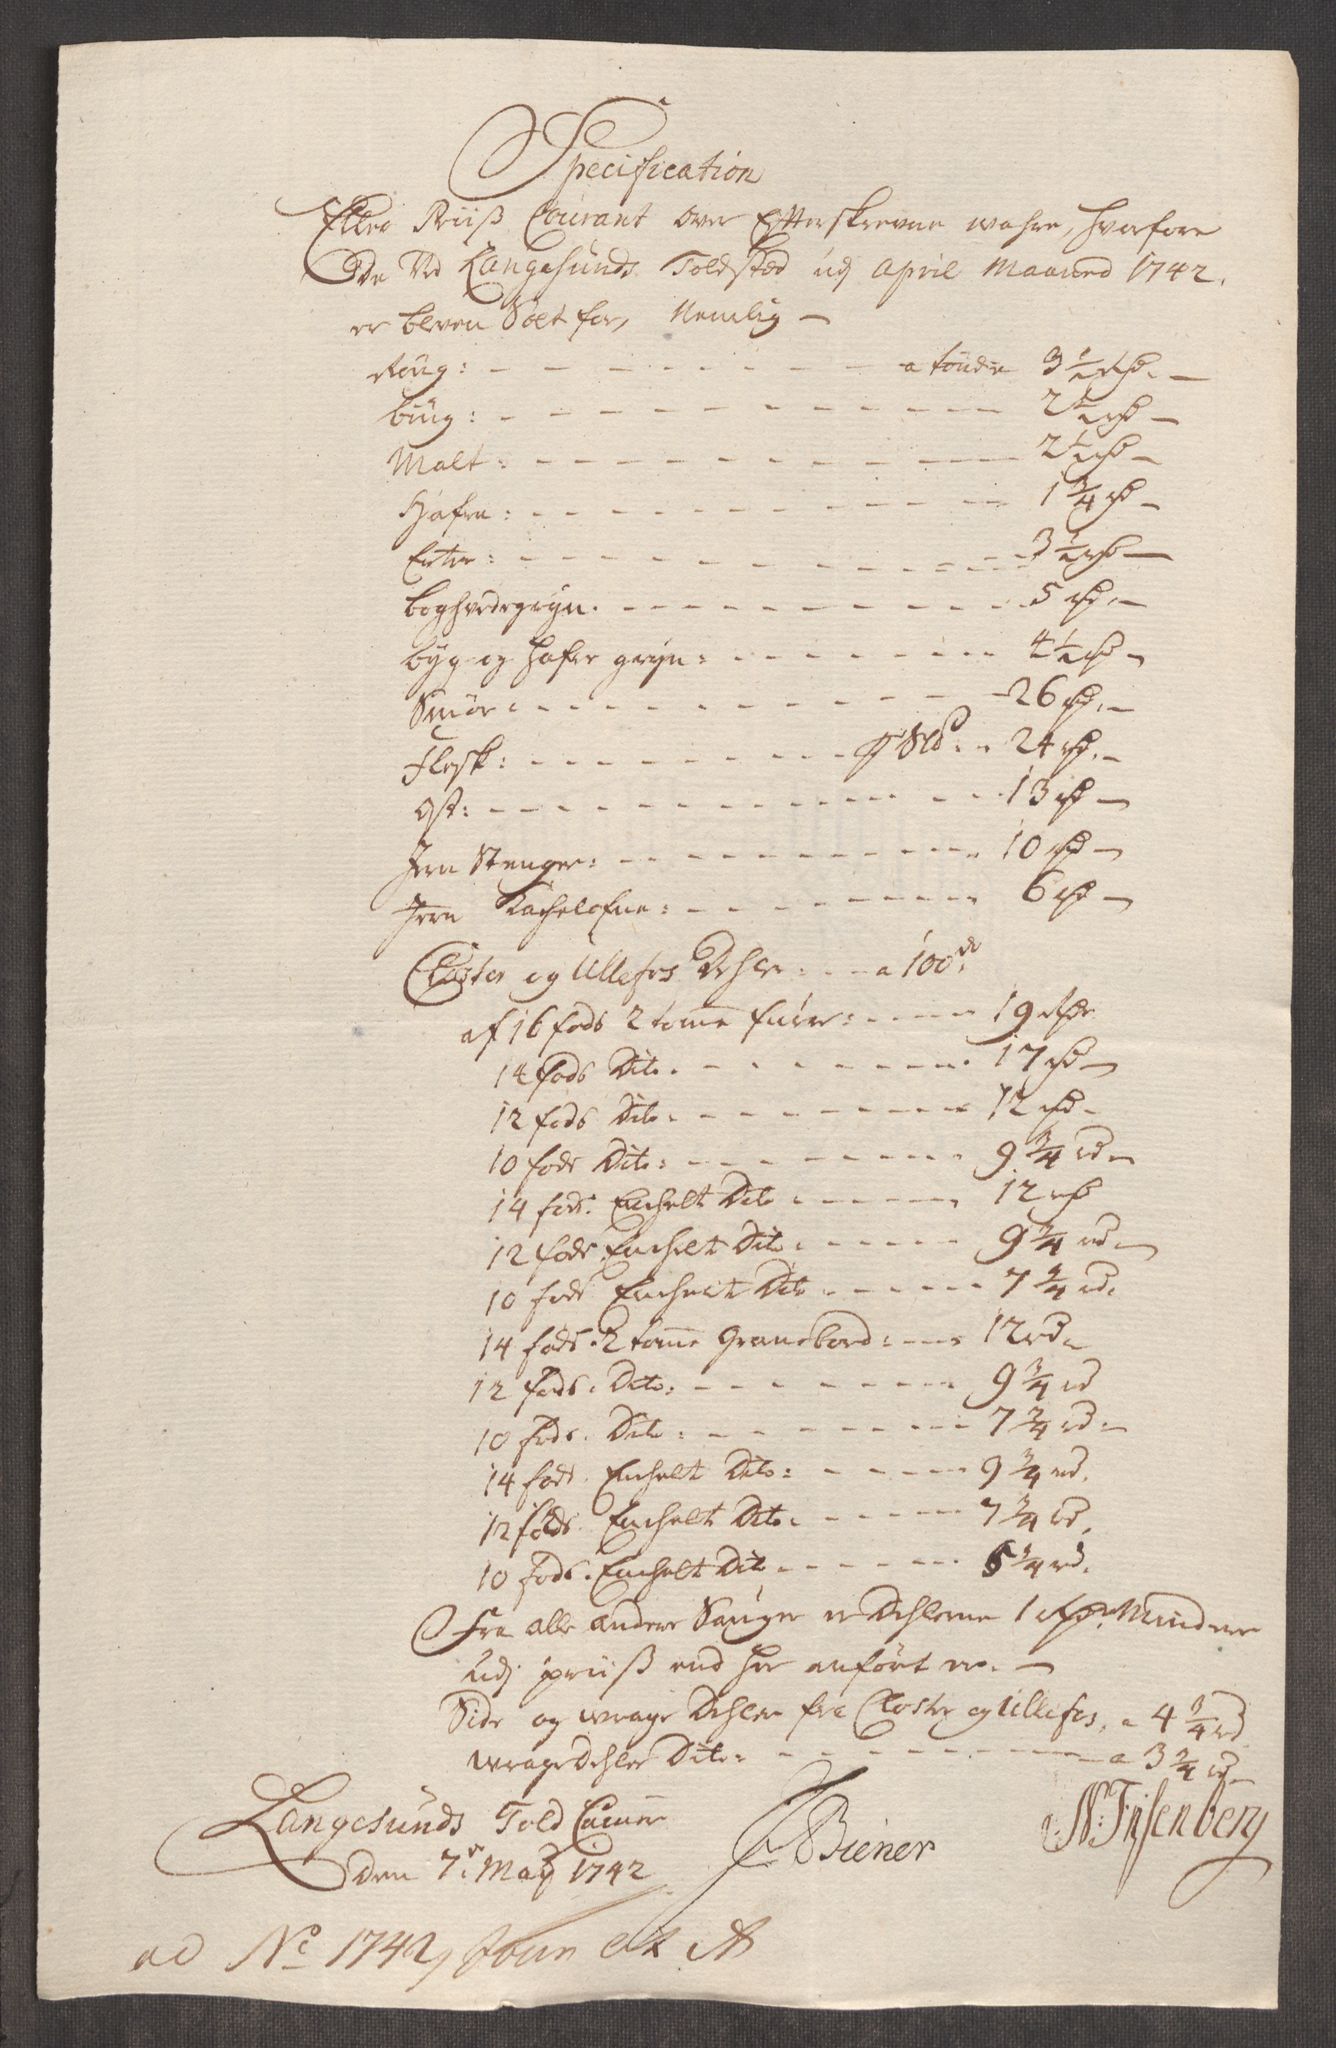 Specification
Eller Priiß Courant over Efterskrevne wahre, hvorfore
De Ved Langesunds Toldsted udj April Maaned 1742.
er bleven Solt for, Nemlig —
Roug: a tönde 3 1/2 rd. —
biug: 2 1/2 rd —
Malt: 2 1/2 rd —
Hafre: 1 3/4 rd —
Erter: 3 1/2 rd —
boghvedegryn. 5 rd. —
byg og hafer gryn: 4 1/2 rd —
Smör: 26 rd. —
Flesk: 24 rd. —
Ost: 13 rd —
Jern Stenger: 10 rd —
Jern Kachelofne: 6 rd —
Closter og Ullefos Dehler: a 100de
af 16 fods 2 tomme furer: 19 rd
14 fods Dito. 17 rd —
12 fods Dito. 12 rd —
10 fods Dito: 9 3/4 rd —
14 fods. Enchelt Dito 12 rd
12 fods. Enchelt Dito. 9 3/4 rd —
10 fods Enchelt Dito 7 3/4 rd.
14 fods. 2 tomme Granebord: 12 rd.
12 fods. Dito: 9 3/4 rd
10 fods. Dito: 7 3/4 rd —
14 fods. Enchelt Dito: 9 3/4 rd.
12 fods. Enchelt Dito. 7 3/4 rd.
10 fods. Enchelt Dito 5 3/4 rd.
Fra alle andre Sauger er Dehlerne 1 rd. Mindre
udj priiß end her anført er. —
Side og wrage Dehler fra Closter og Ullefos, a 4 3/4 rd
wrage Dehler Dito: a 3 3/4 rd —
Langesunds Told Camer
den 7de May 1742
Biener
N: Fisenberg
ad No 1742